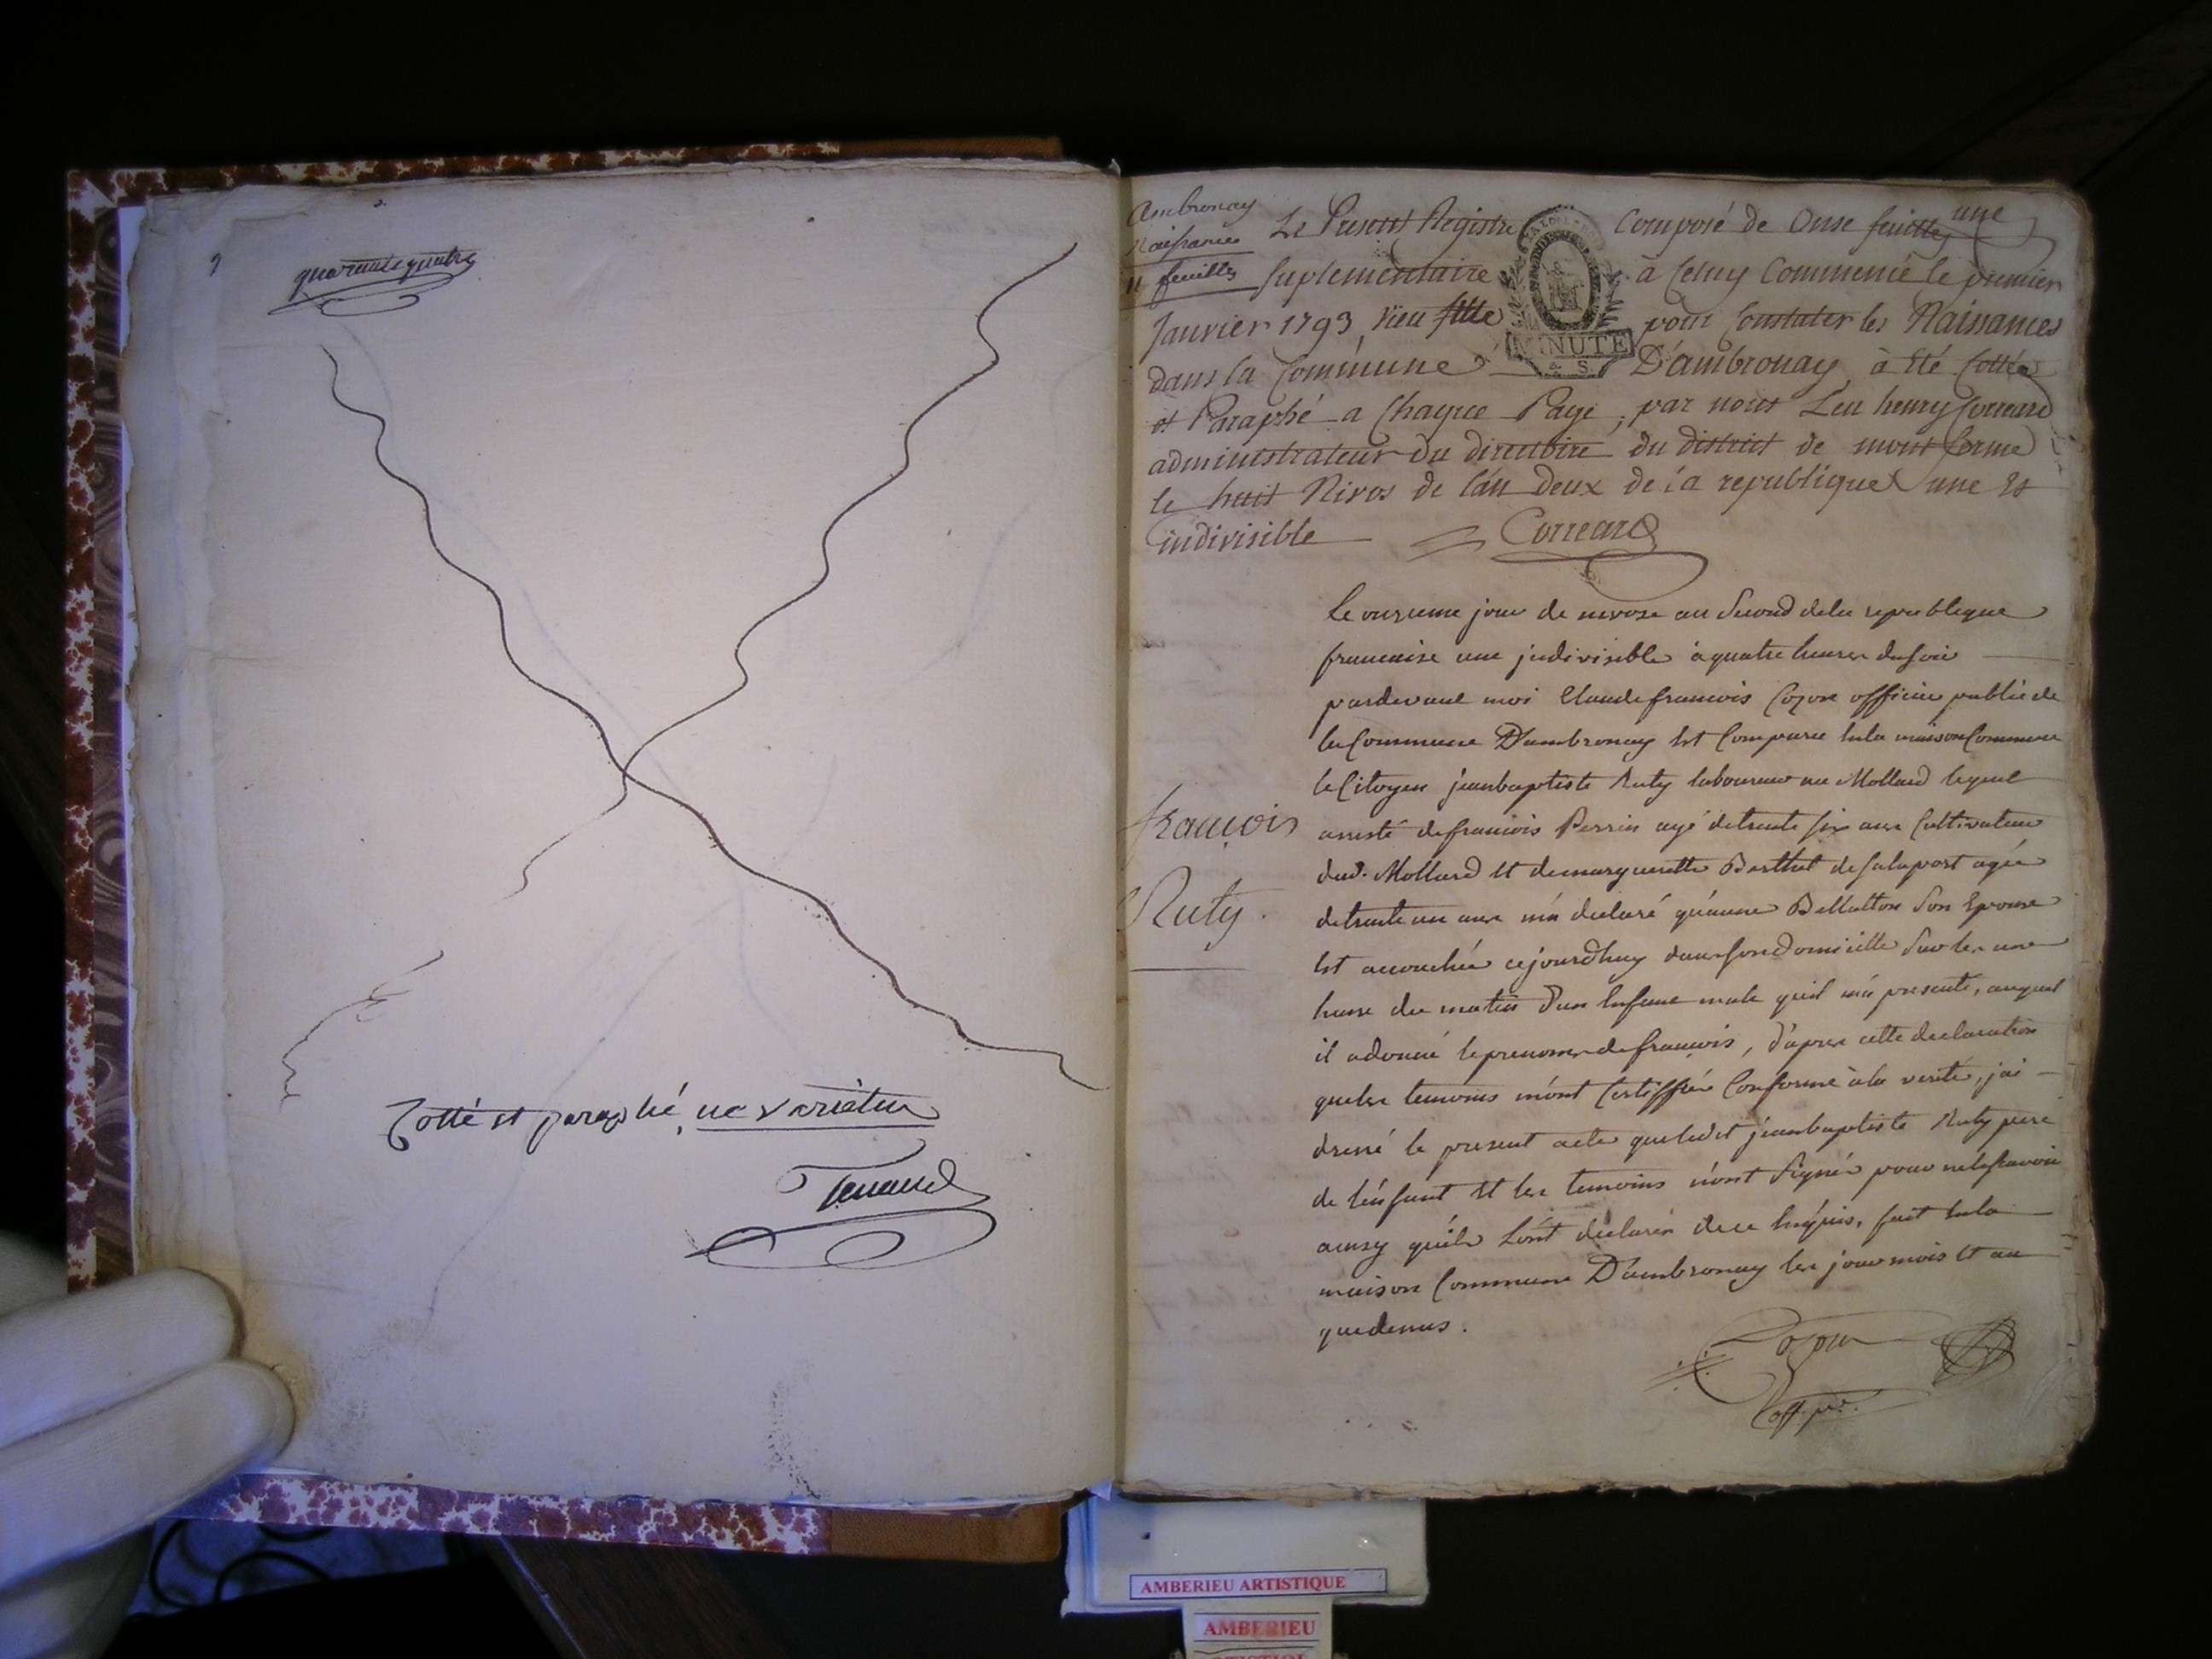 quarante quatre
Cotté et paraphé, ne varietur
Ambronay
Naissances
11 feuilles
Le Present Registre Composé de Onse feuilles une
suplementaire à Celuy Commencé le premier
Janvier 1793 vieu stile pour Constater les Naissances
MINUTE
dans la Commune D'ambronay à été Cotté
et Paraphé a Chaque Page, par nous Leu henry Correard
administrateur du directoire du district de mont ferme
le huit Nivos de l'an Deux de la republique une et
indivisible Correard
Le onzieme jour de nivose an Second dela republique
francaise une jndivisible à quatre heures du soir
pardevant moi Claude francois Cozon officier public de
la Commune D'ambronay Est Comparu En la maison Commune
le Citoyen jeanbaptiste Ruty laboureur au Mollard lequel
françois
assisté de francois Perrin agé de trente six ans Cultivateur
dud. Mollard et de margueritte Berthet de agée
Ruty.
de trente un ans m'a declaré qu'anne Bellatton Son Epouse
Est accouchée cejourdhuy dans son Domicille Sur les une
heure du matin D'un Enfant male quil m'a presenté, auquel
il a donné le prenom de francois, d'apres cette declaration
que les temoins m'ont Certiffiée Conforme à la verité, jai
dressé le present acte que ledit jeanbaptiste Ruty pere
de l'enfant et les temoins n'ont Signé pour ne le scavoir
ainsy qu'ils L'ont declaré de ce Enquis, fait En la
maison Commune D'ambronay les jour mois et an
que dessus.
Cozon
off. p.
AMBERIEU ARTISTIQUE
AMBERIEU